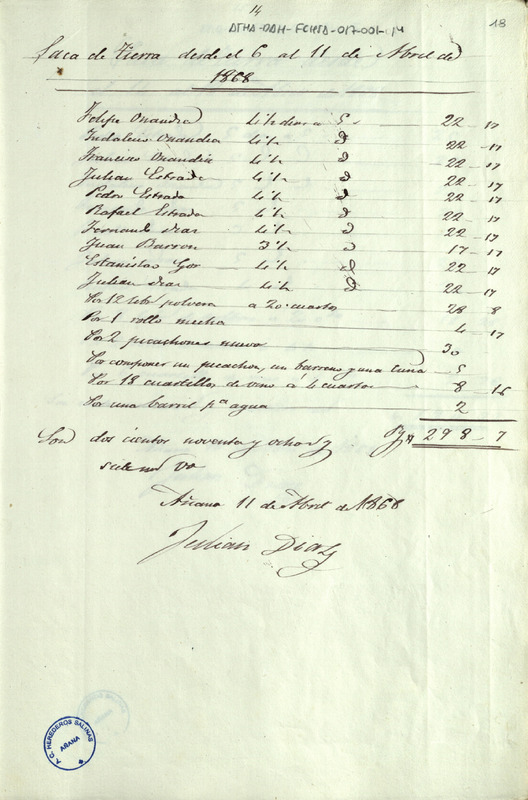 14
ATHA-DAH-FCHSA-017-001-14
18
Saca de Tierra desde el 6 al 11 de Abril de
1868
Felipe Onandia 4 1/2 dias a 5 22-17
Indalecio Onandia 4 1/2 d 22-17
Francisco Onandia 4 1/2 d 22-17
Julian Estrada 4 1/2 d 22-17
Pedro Estrada 4 1/2 d 22-17
Rafael Estrada 4 1/2 d 22-17
Fernando Dias 4 1/2 d 22-17
Juan Barron 3 1/2 d 17-17
Estanislao Gor 4 1/2 d 22-17
Julian Dias 4 1/2 d 22-17
Por 12 polvora a 20 cuartos 28 8
Por 1 rollo mecha 4-17
Por 2 picachones nuevos 30
Por componer un picachon, un barreno y una cuña 5
Por 18 cuartillos de vino á 4 cuartos 8-16
Por una barril pª agua 2
Son dos cientos noventa y ocho 298-7
siete
Añana 11 de Abril de 1868
Julian Diaz
T. C. HEREDEROS SALINAS
AÑANA